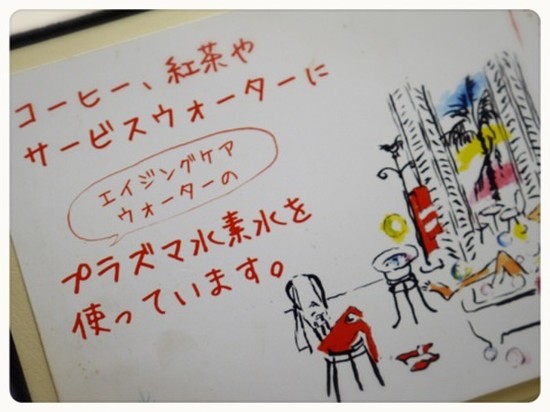 コーヒー、紅茶や
サービスウォーターに
エイジングケア
ウォーターの
プラズマ水素水を
使っています。